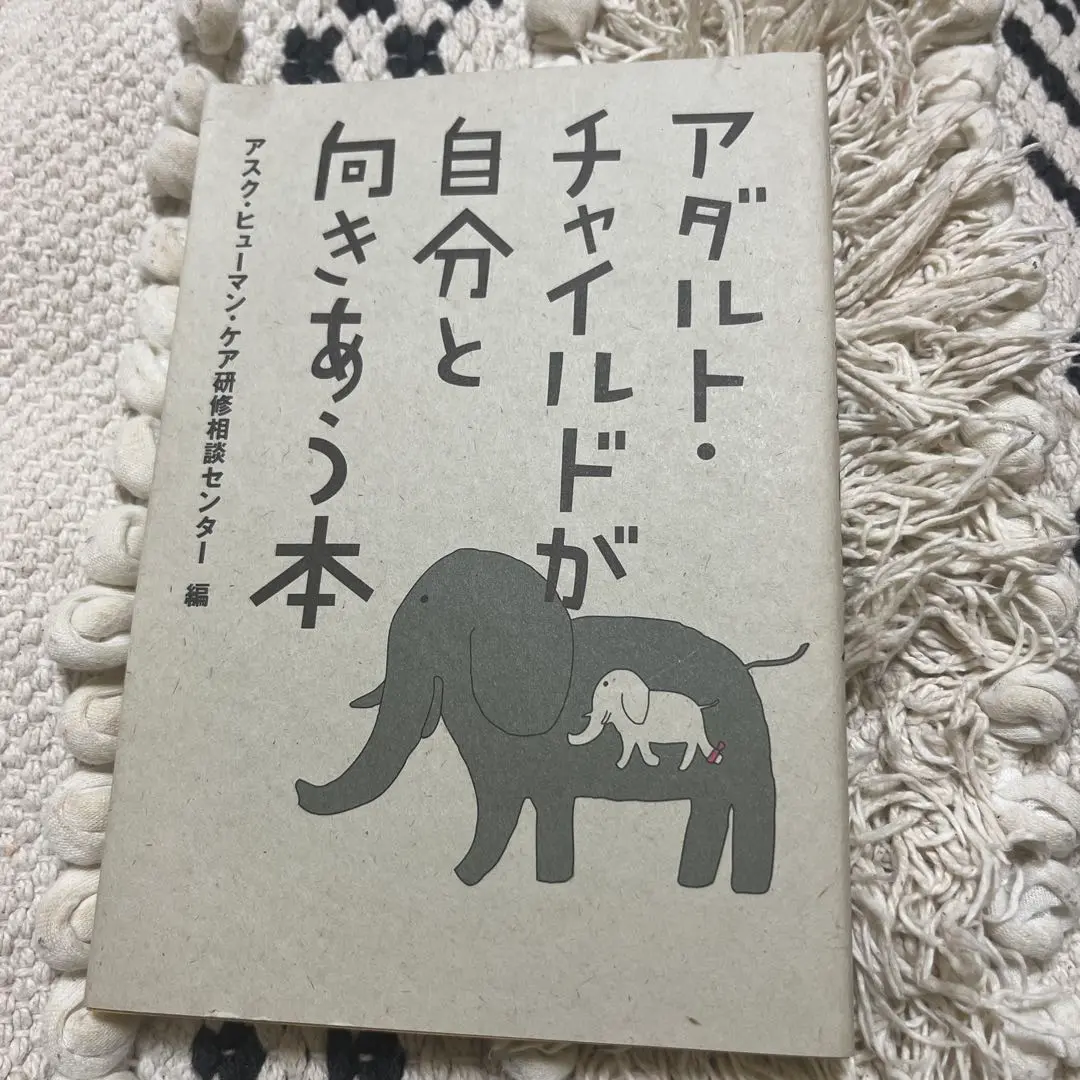 アダルト・
チャイルドが
自分と
向きあう本
アスク・ヒューマン・ケア研修相談センター 編